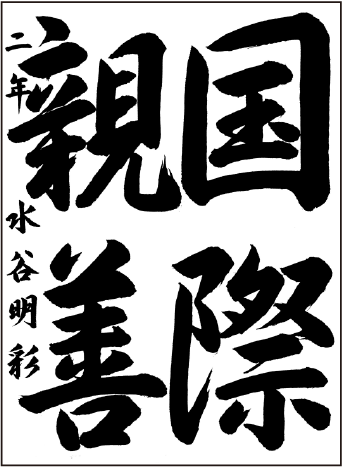 国際
親善
二年 水谷明彩